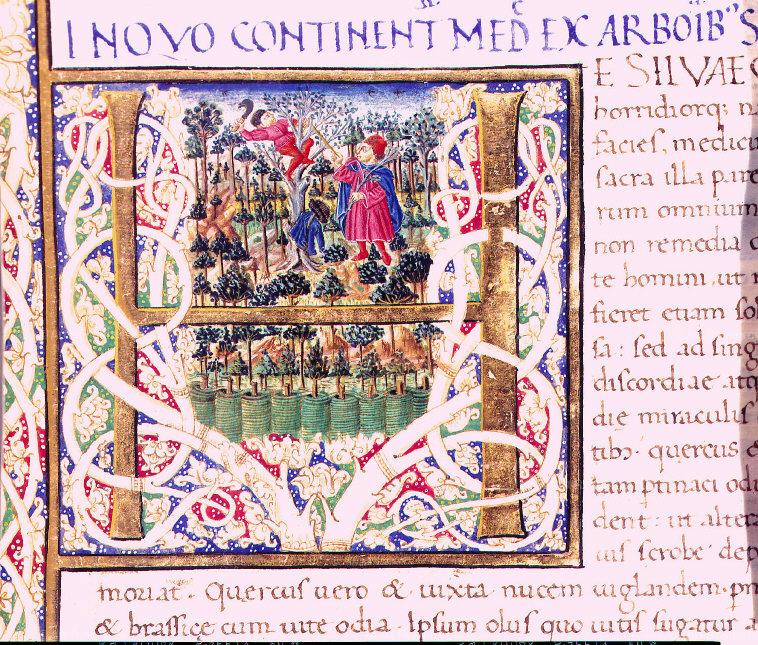 I NOQVO CONTINENT MED EX ARBOIB' S
H
E SILVAE
horridiorq; n
facies, medici
sacra illa pare
rum omnium
non remedia
te homini, ut
fieret etiam sol
sa: sed ad sing
discordiae atq
die miraculis
tibꝫ quercus &
tam ptinaci odi
dent: ut alter
uis scrobe dep
moriat. Quercus uero & iuxta nucem iuglandem.
& brassice cum uite odia. Ipsum olus quo uitis fugatur a